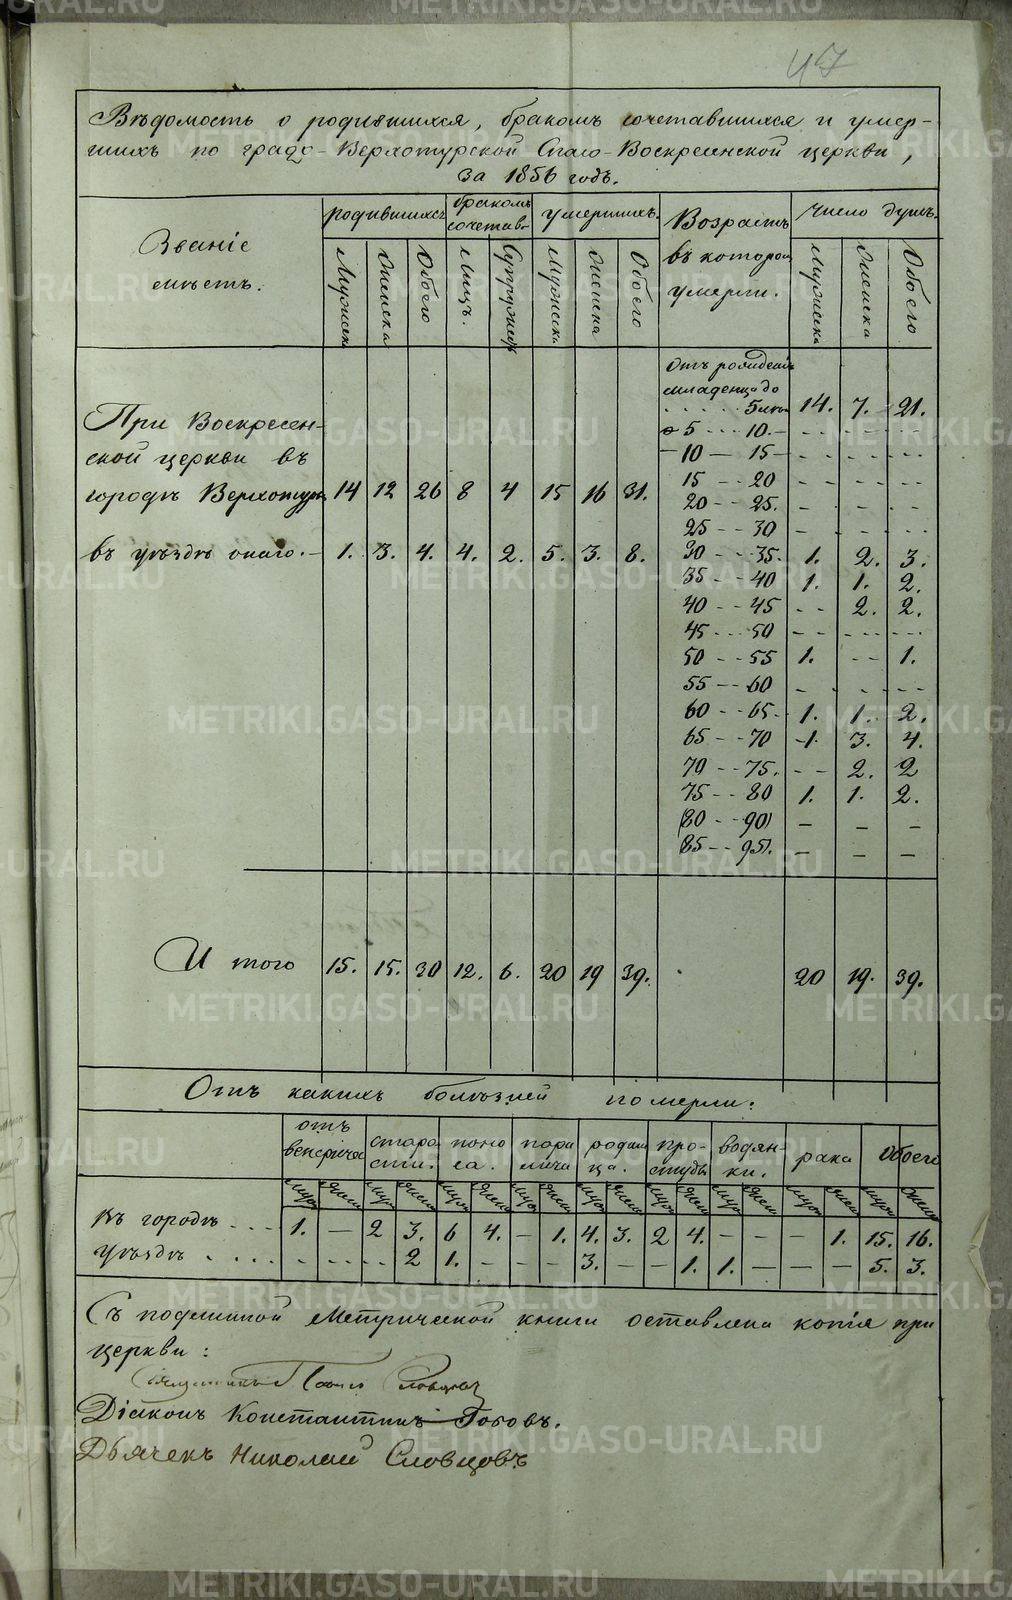 47
Вѣдомость о родившихся, бракомъ сочетавшихся и умер-
шихъ по градо-Верхотурской Спасо-Воскресенской церкви,
за 1856 годъ.
Званіе
мѣстъ.
родившихся
бракомъ
сочетав.
умершихъ.
Возрастъ
въ котором
умерли.
Число душъ.
Мужеска Женска Обоего Лицъ. Супруж. Мужеска Женска Обоего Мужеска Женска Обоего
Отъ рожденія
младенца до
5 лѣтъ 14. 7. 21.
5 - - - 10. - - -
10 — 15 - - -
15 - - 20 - - -
20 - - 25. - - -
25 - - 30 - - -
30 - - 35. 1. 2. 3.
35 - - 40 1. 1. 2.
40 - - 45 - - 2. 2.
45 - - 50 - - -
50 - - 55 1. - - 1.
55 - - 60 - - -
60 - - 65 1. 1. 2.
65 - - 70 1. 3. 4.
70 - - 75. - - 2. 2
75 - - 80 1. 1. 2.
80 - - 90 - - -
85 - - 95. - - -
При Воскресен-
ской церкви въ
городѣ Верхотурьѣ 14 12 26 8 4 15 16 31.
въ уѣздѣ онаго. 1. 3. 4. 4. 2. 5. 3. 8.
Итого 15. 15. 30 12. 6. 20 19 39. 20 19. 39.
Отъ какихъ болѣзней померли:
отъ
венерическ
старо
сти.
поно
са.
пара
лича
родим
ца.
про-
студы
водян-
ки.
рака
Обоего
Муж Жен Муж Жен Муж Жен Муж Жен Муж Жен Муж Жен Муж Жен Муж Жен Муж Жен
Въ городѣ 1. - 2 3. 6 4. - 1. 4. 3. 2 4. - - - 1. 15. 16.
Уѣздѣ - - - 2 1. - - - 3. - - 1. 1. - - - 5. 3.
Съ подлинной Метрической книги оставлена копія при
церкви:
Священникъ Словцовъ
Діаконъ Константинъ Поповъ.
Дьячекъ Николай Словцовъ
METRIKI.GASO-URAL.RU